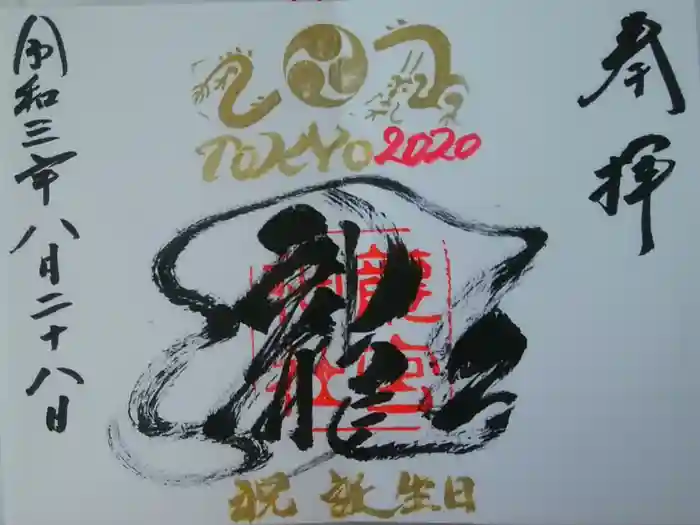 奉拝
TOKYO 2020
龍
祝 誕生日
令和三年八月二十八日